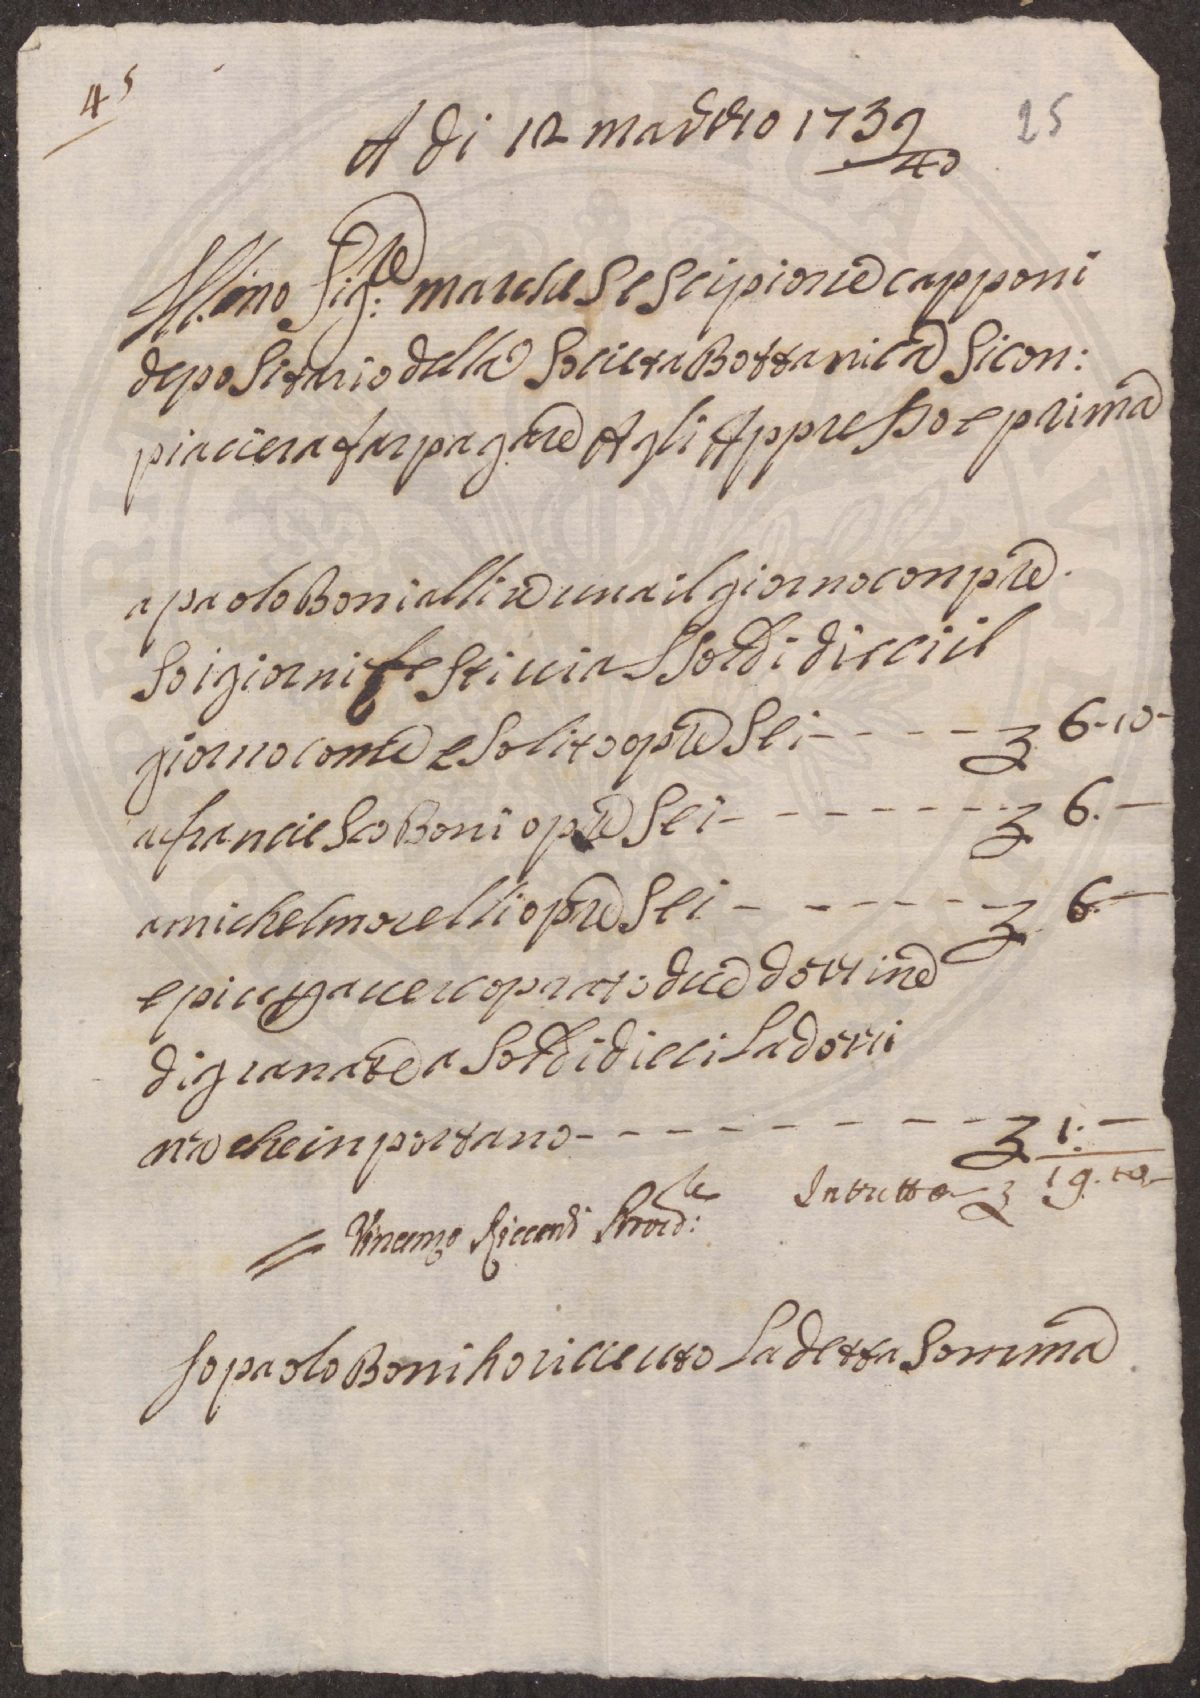 45
25
A di 12 Marzo 1739/40
Ill:mo Sig:re marchese Scipione capponi
depositario della Societa Bottanica Si con:
piaciera far pagare Agli Appresso e prima
a paolo Boni a lire una il giorno conpre
so i giorni festiui a Soldi dieci il
giorno come e Solito opre Sei - - - - £ 6-10-
a franciesco Boni opre Sei - - - - - - £ 6. -
a michel morelli opre Sei - - - - - - £ 6. -
e piu per auer coprato due dozzine
di granate a Soldi dieci La dozzi
na che inportano - - - - - - - - - £ 1: -
In tutto £ 19. 10 -
= Vincenzo Riccardi Proved:re
Io paolo Boni ho riceuuto La detta Somma